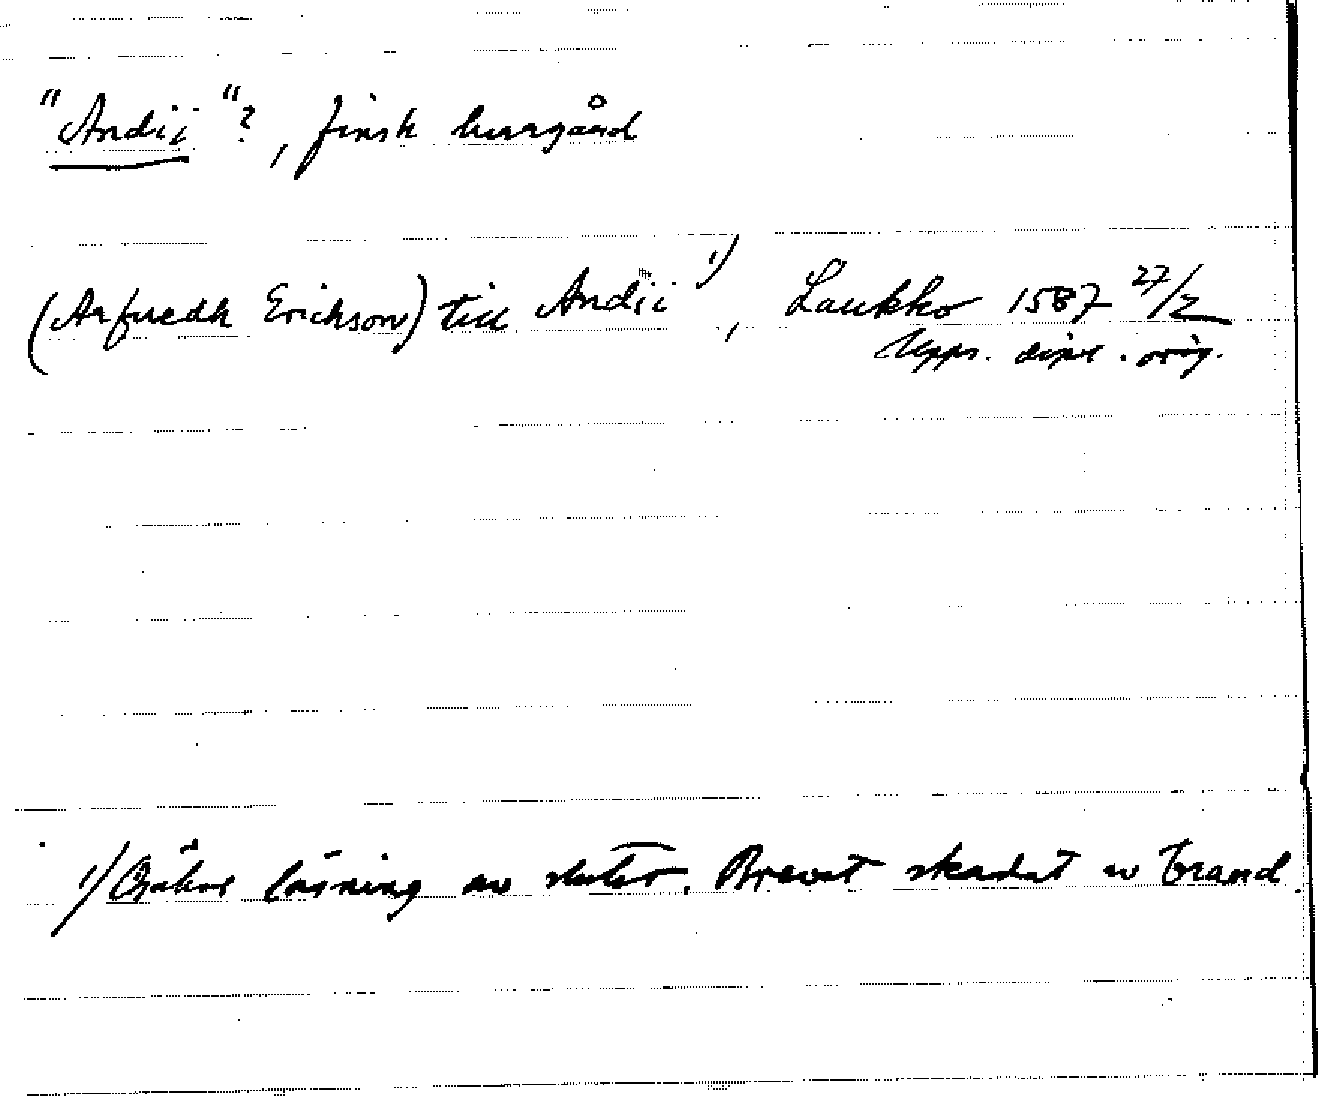 "Andii"?, finsk herrgård
(Arfuedh Erichson) till Andii 1), Laukko 1587 27/2
Upps. dipl. orig.
1/ Osäker läsning av slutet. Brevet skadat av brand.